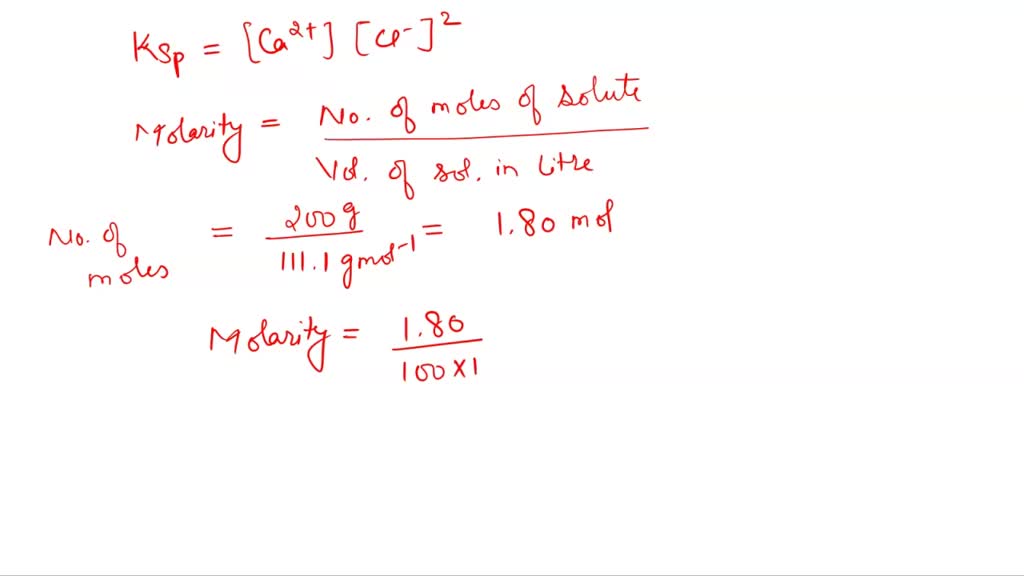 Ksp = [Ca²⁺] [Cl⁻]²
Molarity = No. of moles of solute / Vol. of sol. in litre
No. of moles = 200 g / 111.1 g mol⁻¹ = 1.80 mol
Molarity = 1.80 / 100 × 1